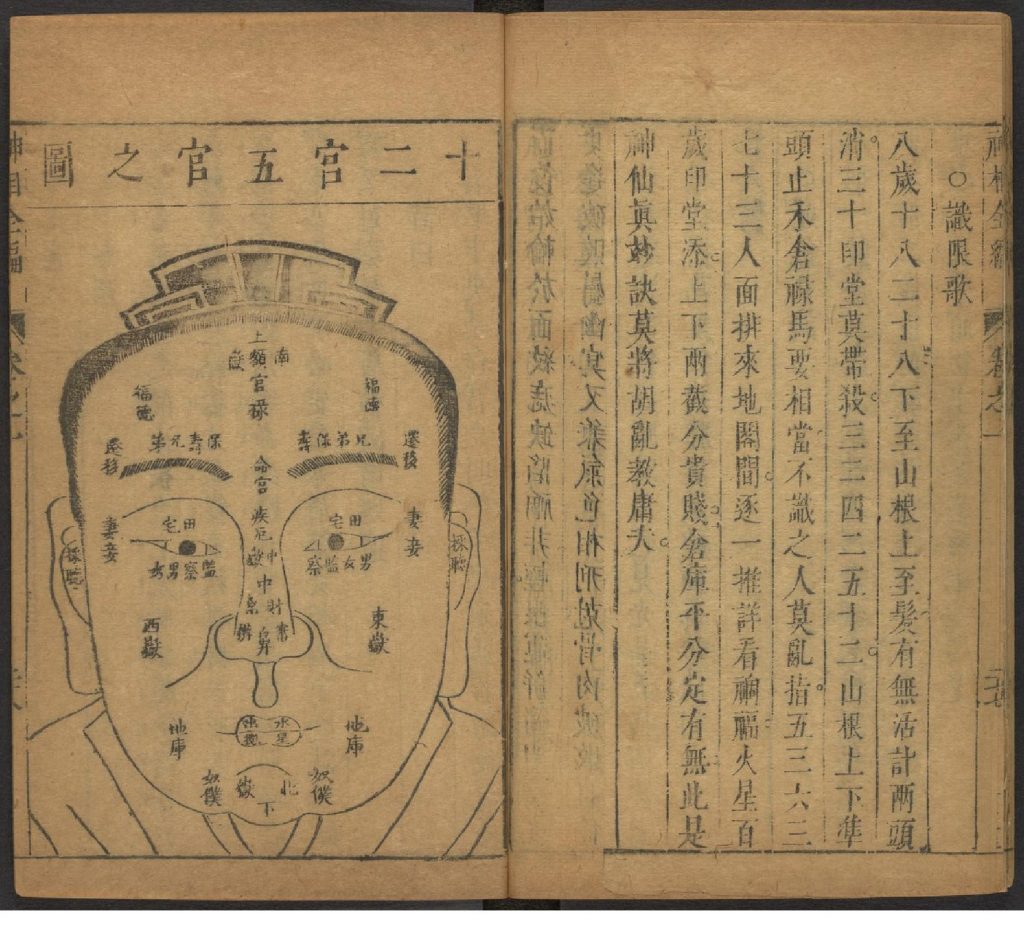 ○識限歌
八歲十八二十八下至山根上至髮有無活計兩頭
消三十印堂莫帶殺三三四二五十三山根上下準
頭止禾倉祿馬要相當不識之人莫亂指五三六三
七十三人面排來地閣間逐一推詳看禍福火星百
歲印堂添上下兩截分貴賤倉庫平分定有無此是
神仙眞妙訣莫將胡亂教庸夫
十二宮五官之圖
南
嶽
上額官祿
福德
福德
兄弟保壽
保壽兄弟
遷移
遷移
命宮
疾厄
妻妾
妻妾
田宅
田宅
男女
監察
男女
監察
採聽
採聽
中嶽
中
財帛
鼻
東嶽
西嶽
水星
地庫
地庫
北嶽
下
奴僕
奴僕